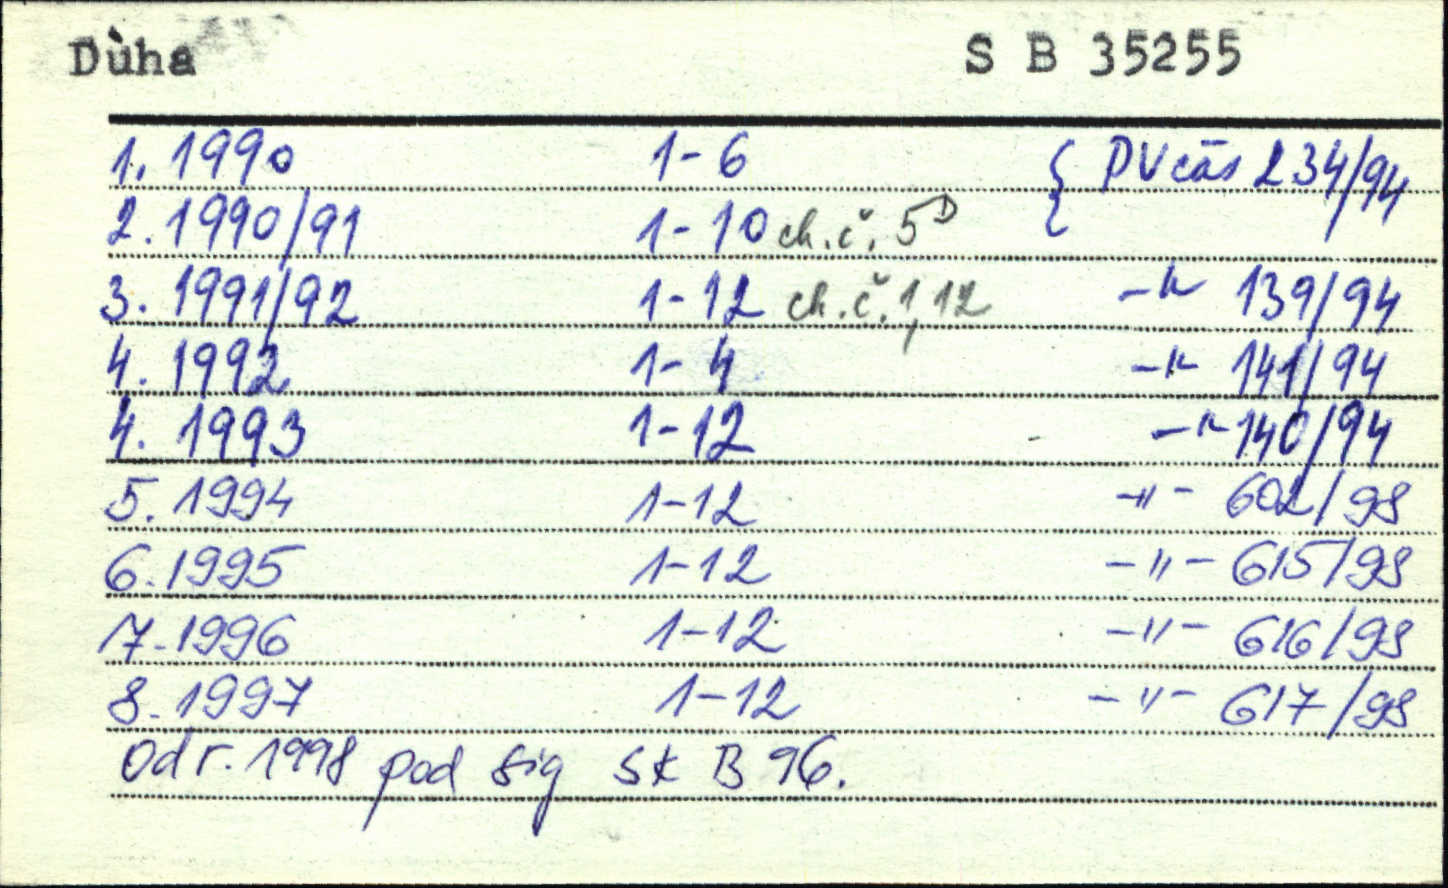 Dùha S B 35255
1. 1990 1-6 { PV čás 234/94
2. 1990/91 1-10 ch.č. 5D
3. 1991/92 1-12 ch.č. 1, 12 -"- 139/94
4. 1992 1-4 -"- 141/94
4. 1993 1-12 -"- 140/94
5. 1994 1-12 -"- 602/98
6. 1995 1-12 -"- 615/98
7. 1996 1-12 -"- 616/98
8. 1997 1-12 -"- 617/98
Od r. 1998 pod sig SK B 96.